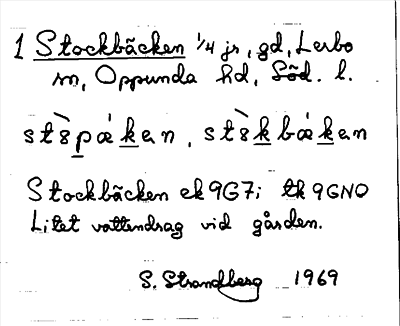 1 Stockbäcken 1/4 jr, gd, Lerbo
sn, Oppunda hd, Söd. l.
stò̀pǽken, stò̀kbǽken
Stockbäcken ek 9G7i tk 9GNO
Litet vattendrag vid gården.
S. Strandberg 1969